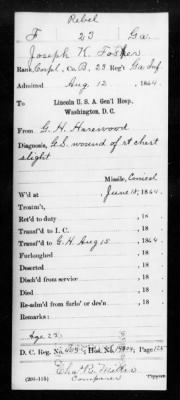 Rebel
F 23 Ga
Joseph K.
Rank Corpl., Co. B, 23 Reg't Ga Inf.
Admitted Aug 12, 1864.
To Lincoln U. S. A. Gen'l Hosp.
Washington, D. C.
From G. H. Harewood
Diagnosis, G.S. wound of rt chest
slight
Missile, Conical
W'd at June 18, 1864.
Treatm't,
Ret'd to duty , 18 .
Transf'd to I. C. , 18 .
Transf'd to G.H. Aug 15 1864.
Furloughed , 18 .
Deserted , 18 .
Disch'd from service , 18 .
Died , 18 .
Re-adm'd from furlo' or des'n , 18 .
Remarks:
Age 23
D. C. Reg. No. Hosp. No. Page 125
Chas. B.
Copyist.